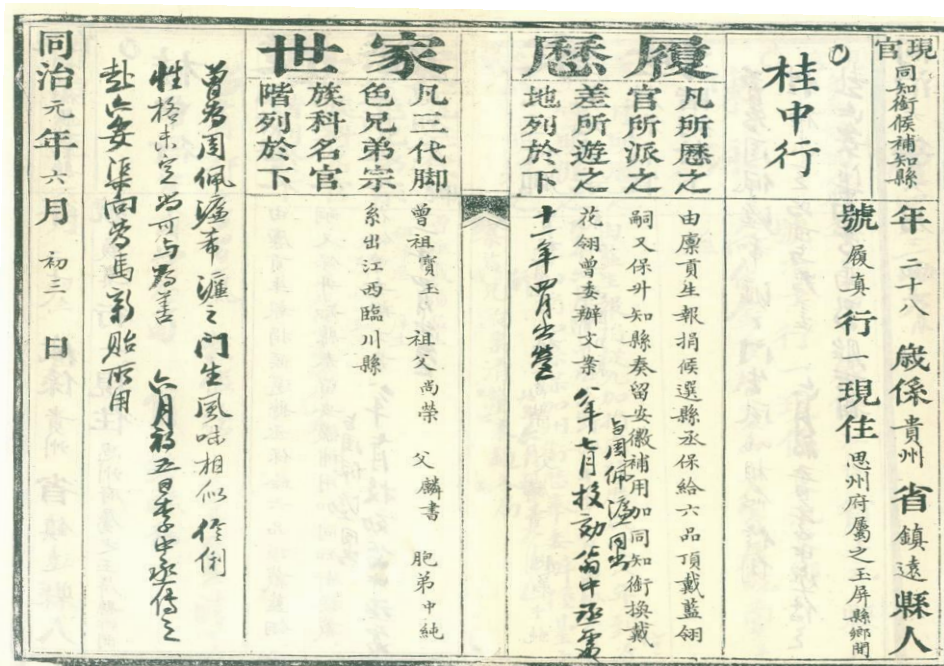 現官
同知銜候補知縣
年二十八歲係貴州省鎮遠縣人
桂中行
號履真行一現住思州府屬之玉屏縣鄉間
履歷
凡所歷之
官所派之
差所遊之
地列於下
由廩貢生報捐候選縣丞保給六品頂戴藍翎
嗣又保升知縣奏留安徽補用加同知銜換戴
花翎曾委辦文案 八年七月投効翁中丞處
與周佩濂同出
十一年四月出營
家世
凡三代脚
色兄弟宗
族科名官
階列於下
曾祖寶玉 祖父尚榮 父麟書 胞弟中純
系出江西臨川縣
曾為周佩濂希濂之門生風味相似 伶俐
性格未定尚可与為善 六月初五日李中丞傳之
赴六安渠向為馬新貽所用
同治元年六月初三日